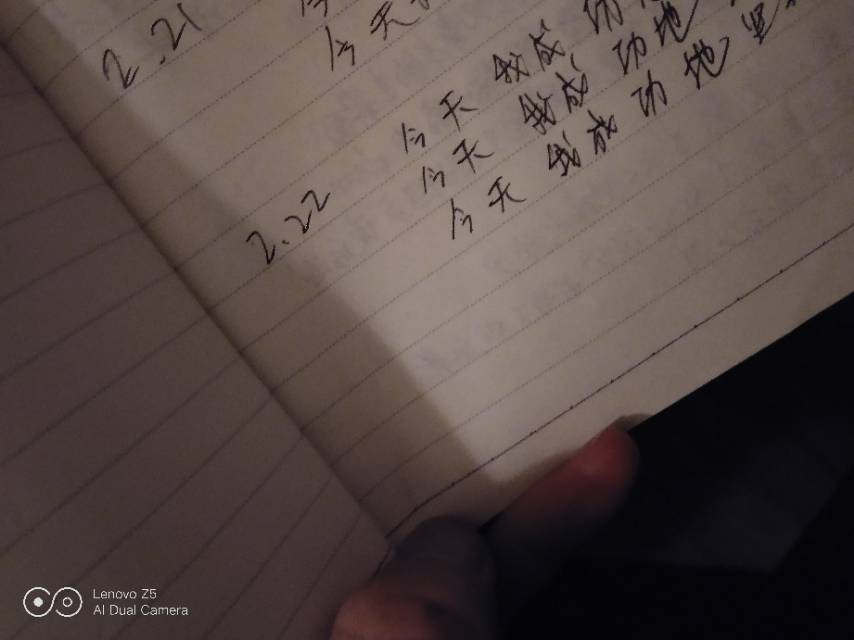 2.21
今天
2.22
今天 我成功
今天 我成功地
今天 我成功地
Lenovo Z5
AI Dual Camera